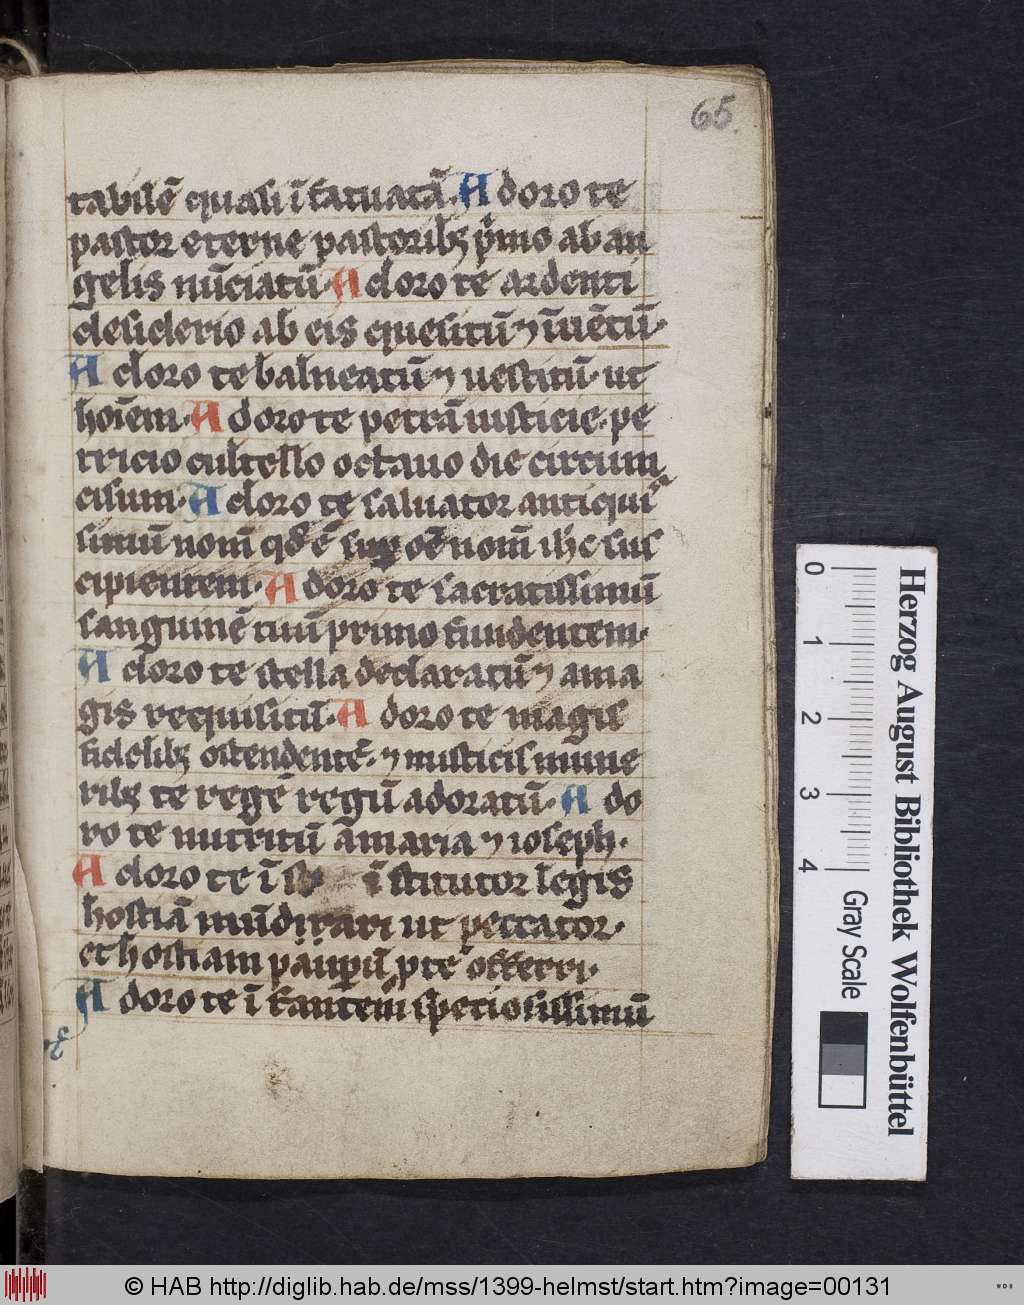 65.
tabilē quasi ī fatuatā. Adoro te
pastor eterne pastoribꝫ p̄mo ab an
gelis nūciatū. Adoro te ardenti
desiderio ab eis quesitū ⁊ īuētū.
Adoro te balneatū ⁊ uestitū. ut
hoīem. Adoro te petrā iusticie. pe
tricio cultello octauo die circum
cisum. Adoro te saluator antiqui
simū nom̄ qd̄ ē suꝑ oē nom̄ ihc sus
cipientem. Adoro te sacratissimū
sanguinē tuū primo fundentem.
Adoro te stella declaratū ⁊ a ma
gis requisitū. Adoro te magis
fidelibꝫ ostendentē. ⁊ misticis mune
ribꝫ te regē regū adoratū. Ado
ro te nutritū a maria ⁊ ioseph.
Adoro te ī īstitutor legis
hostiā mūdirari ut peccator.
et hostiam paupū p te offerri.
Adoro te ī fantem spetiosissimū
Herzog August Bibliothek Wolfenbüttel
0 1 2 3 4
Gray Scale
© HAB http://diglib.hab.de/mss/1399-helmst/start.htm?image=00131